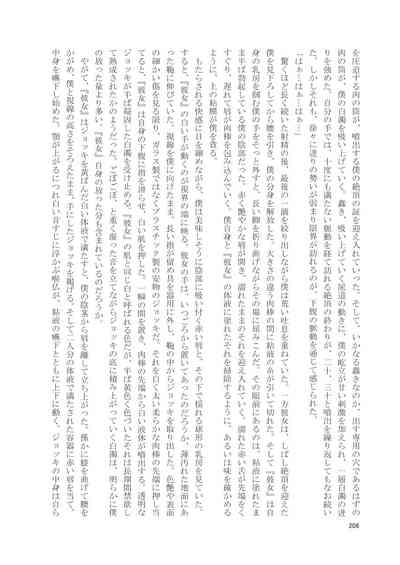 を圧迫する肉の筒が、噴出する僕の絶頂の証を迎え入れていった。そして、いかなる蠢きなのか、出す専用の穴であるはずの
肉の筒が、僕の白濁を吸い上げていく。蠢き、吸い上げていく尿道の動きに、僕の屹立が甘い刺激を加えられ、一層白濁の迸
りを強めた。自分の手では、十度にも満たない脈動を経て訪れる絶頂の終わりが、二十、三十と噴出を繰り返してもなお続い
た。しかしそれも、徐々に迸りの勢いが弱まり限界が訪れるのが、下腹の脈動を通じて感じられた。
「…はぁ…はぁ…」
　驚くほど長く続いた射精の後、最後の一滴を絞り出しながら僕は荒い吐息を重ねていた。一方彼女は、しばし絶頂を迎えた
僕を見下ろしてから腰を引き、僕の分身を解放した。大きさの違う肉棒の間に粘液の糸が引いて切れた。そして『彼女』は自
身の乳房を掴む僕の手をそっと外すと、長い脚を折り曲げながらその場に屈みこんだ。その眼前にあるのは、粘液に塗れたま
ま半ば勃起している僕の陰部だった。赤く艶やかな唇が開き、濡れたままのそれを迎え入れていく。濡れた赤い舌が先端をく
すぐり、遅れて唇が肉棒を包み込んでいく。僕自身と『彼女』の体液に濡れたそれを掃除するように、あるいは味を確かめる
ように、上の粘膜が僕を貪る。
　もたらされる快感に目を細めながら、僕は美味しそうに陰部に吸い付く赤い唇と、その下で揺れる球形の乳房を見ていた。
すると、『彼女』の白い手が動くのが視界の端に映る。彼女の手は、いつごろから置いてあったのだろうか、薄汚れた地面にあ
った鞄に伸びていた。視線を僕に向けたまま、長い指が留め具を器用に外し、鞄の中からジョッキを取り出した。色艶や表面
の細かい傷を見る限り、ガラス製ではなくプラスチック製の安物のジョッキだ。それを白く太い柔らかな肉棒の先端に押し当
てると、『彼女』は自身の下腹に指を滑らせ、白い肌を押した。一瞬の間を置き、肉棒の先端から白い液体が噴出する。透明な
ジョッキが半ば凝固した白濁を受け止める。『彼女』の肌と同じ白と呼ばれる色だが、半ば黄色く色づいたそれは長期間禁欲し
て熟成されたかのようだった。ごぼごぼ、と重く湿った音を立てながらジョッキの底に積み上がっていく白濁は、明らかに僕
の放った量より多い。『彼女』自身の放った分も含まれているのだろうか。
　やがて、『彼女』はジョッキを黄ばんだ白い体液で満たすと、僕の陰茎から唇を離して立ち上がった。微かに膝を曲げて腰を
かがめ、僕と視線の高さをそろえたまま、手にしたジョッキを掲げる。そして二人分の体液で満たされた容器に赤い唇を当て、
中身を嚥下し始めた。顎が上がるにつれ白い首すじに浮かぶ喉仏が、粘液の嚥下とともに上下に動く。ジョッキの中身は自ら
206